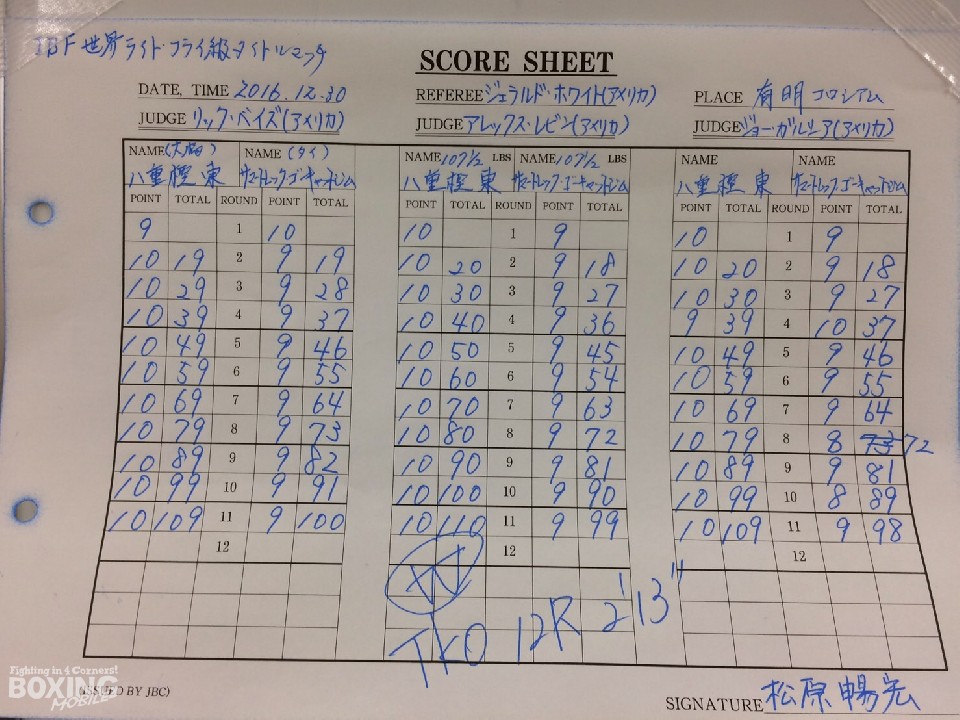 IBF世界ライト・フライ級タイトルマッチ
SCORE SHEET
DATE, TIME 2016.12.30 REFEREE ジェラルド・ホワイト(アメリカ) PLACE 有明コロシアム
JUDGE リック・ベイズ(アメリカ) JUDGE アレックス・レビン(アメリカ) JUDGE ジョー・ガルシア(アメリカ)
NAME (大橋) NAME (タイ) NAME 107 1/2 LBS NAME 107 1/2 LBS NAME NAME
八重樫 東 サマートレック・ゴーキャットジム 八重樫 東 サマートレック・ゴーキャットジム 八重樫 東 サマートレック・ゴーキャットジム
POINT TOTAL ROUND POINT TOTAL POINT TOTAL ROUND POINT TOTAL POINT TOTAL ROUND POINT TOTAL
9 1 10 10 1 9 10 1 9
10 19 2 9 19 10 20 2 9 18 10 20 2 9 18
10 29 3 9 28 10 30 3 9 27 10 30 3 9 27
10 39 4 9 37 10 40 4 9 36 9 39 4 10 37
10 49 5 9 46 10 50 5 9 45 10 49 5 9 46
10 59 6 9 55 10 60 6 9 54 10 59 6 9 55
10 69 7 9 64 10 70 7 9 63 10 69 7 9 64
10 79 8 9 73 10 80 8 9 72 10 79 8 8 73 72
10 89 9 9 82 10 90 9 9 81 10 89 9 9 81
10 99 10 9 91 10 100 10 9 90 10 99 10 8 89
10 109 11 9 100 10 110 11 9 99 10 109 11 9 98
12 12 12
W
TKO 12R 2'13"
Fighting in 4 Corners!
BOXING
MOBILE
(ISSUED BY JBC)
SIGNATURE 松原暢宏